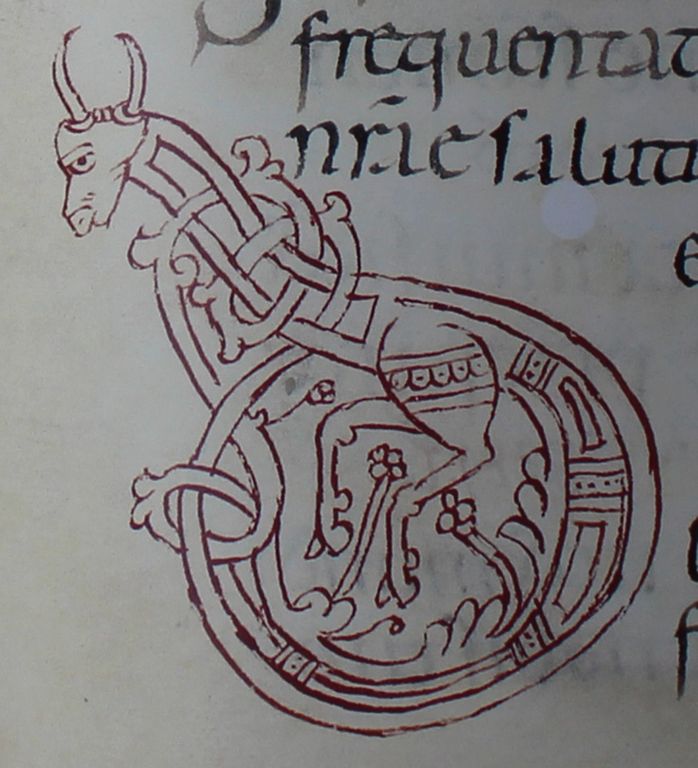 frequentat
nrāe saluta
e